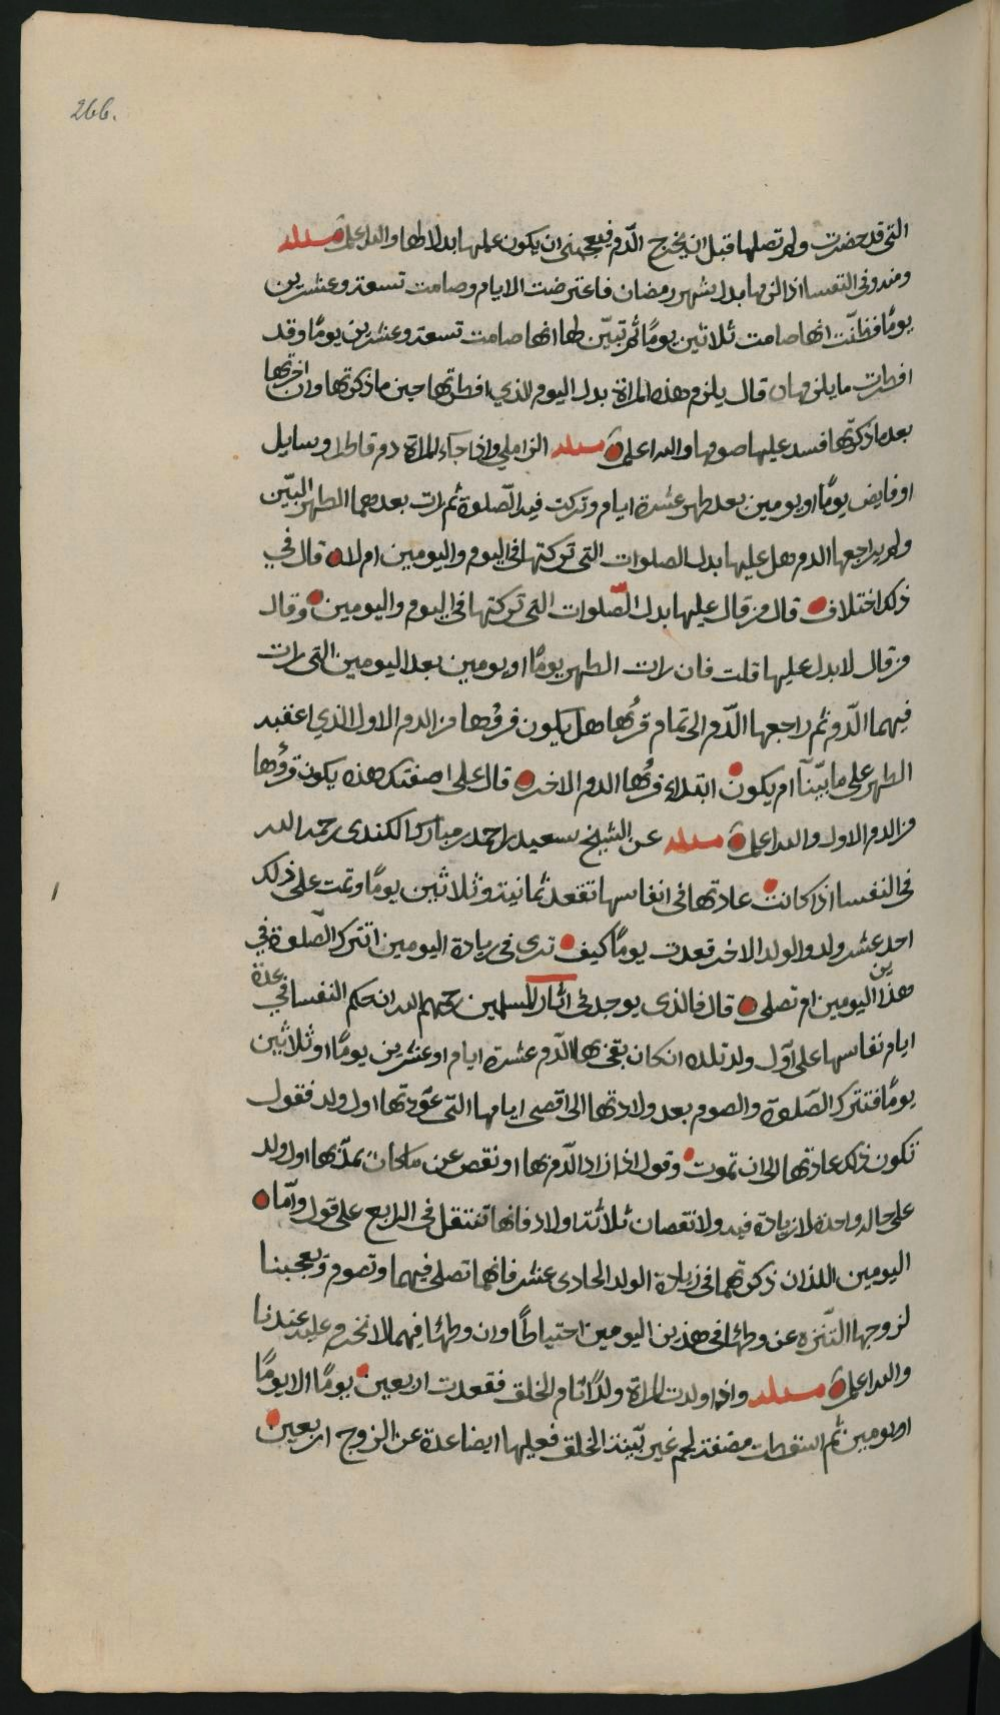 266.
التي قد حضرت ولم تصلها قبل ان يخرج الدّم فيعجبني ان يكون عليها بدلا لها والله اعلم مسئله
ومنه وفى النفسا اذا لزمها بدل شهر رمضان فاعترضت الايام وصامت تسعة وعشرين
يومًا فظنّت انها صامت ثلاثين يومًا ثم تبيّن لها انها صامت تسعة وعشرين يومًا وقد
افطرت ما يلزمها قال يلزم هذه المراة بدل اليوم الذي افطرتها حين ما ذكرتها وان اخرتها
بعد ما ذكرتها فسد عليها صومها والله اعلم مسئله الزاملي واذا جآء المراة دم قاطر او سايل
او فايض يومًا او يومين بعد طهر عشرة ايام وتركت فيه الصّلوة ثم رات بعدهما الطهر البيّن
ولم يراجعها الدم هل عليها بدل الصلوات التي تركتها فى اليوم واليومين ام لا قال في
ذلك اختلاف قال من قال عليها بدل الصّلوات التي تركتها فى اليوم واليومين وقال
من قال لا بدل عليها قلت فان رات الطهر يومًا او يومين بعد اليومين التي رات
فيهما الدّم ثم راجعها الدّم الى تمام قرُءها هل يكون قرؤها من الدم الاول الذي اعقبه
الطهر على ما بيّنّا ام يكون ابتداء قرُءها الدم الاخر قال على اصفتك هذه يكون قرؤها
من الدم الاول والله اعلم مسئله عن الشيخ سعيد بن احمد بن مبارك الكندى رحمه الله
فى النفسا اذا كانت عادتها فى انفاسها تقعد ثمانية وثلاثين يومًا وتمت على ذلك
احد عشر ولد والولد الاخر قعدت يومًا كيف ترى فى زيادة اليومين اتترك الصّلوة في
هذين اليومين ام تصلى قال فالذى يوجد فى اثار المسلمين رحمهم الله ان حكم النفسا في عدة
ايام نفاسها على اوّل ولد تلده ان كان بقى بها الدّم عشرة ايام او عشرين يومًا او ثلاثين
يومًا فتترك الصّلوة والصوم بعد ولادتها الى اقصى ايامها التي عوّدتها اول ولد فقول
تكون ذلك عادتها الى ان تموت وقول اذا زاد الدّم بها او نقص عن ما كان يمدّ بها اول ولد
على حاله واحدة لا زيادة فيه ولا نقصان ثلاثة اولاد فانها تنتقل فى الرابع على قول وامّا
اليومين اللذان ذكرتهما فى زيادة الولد الحادى عشر فانها تصلى فيهما وتصوم ويعجبنا
لزوجها التّنزه عن وطئها فى هذين اليومين احتياطًا وان وطئها فيهما لا تحرم عليه عندنا
والله اعلم مسئله واذا ولدت المراة ولدًا تام الخلق فقعدت اربعين يومًا الا يومًا
او يومين ثم اسقطت مضغة لحم غير بيّنة الخلق فعليها ايضا عدة عن الزوج اربعين